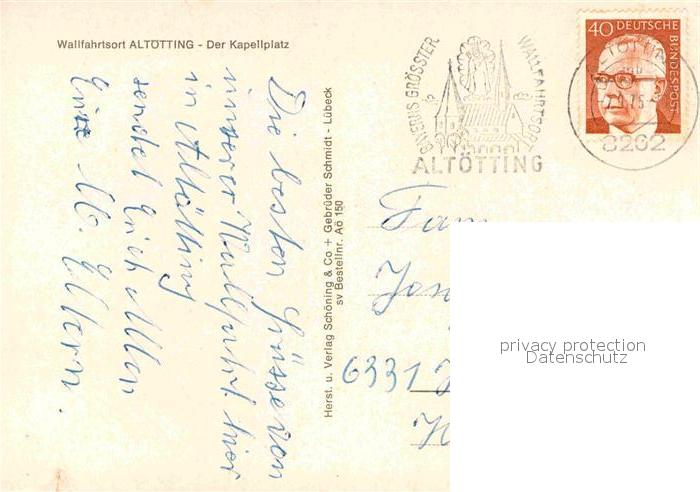 Wallfahrtsort ALTÖTTING - Der Kapellplatz
BAYERNS GRÖSSTER WALLFAHRTSORT
ALTÖTTING
40 DEUTSCHE
BUNDESPOST
8262
Die besten Grüsse von
unserer Wallfahrt hier
in Altötting
sendet Euch Allen
Eure Eltern.
Herst. u. Verlag Schöning & Co + Gebrüder Schmidt - Lübeck
sv Bestellnr. Aö 150
Fam
6331
privacy protection
Datenschutz